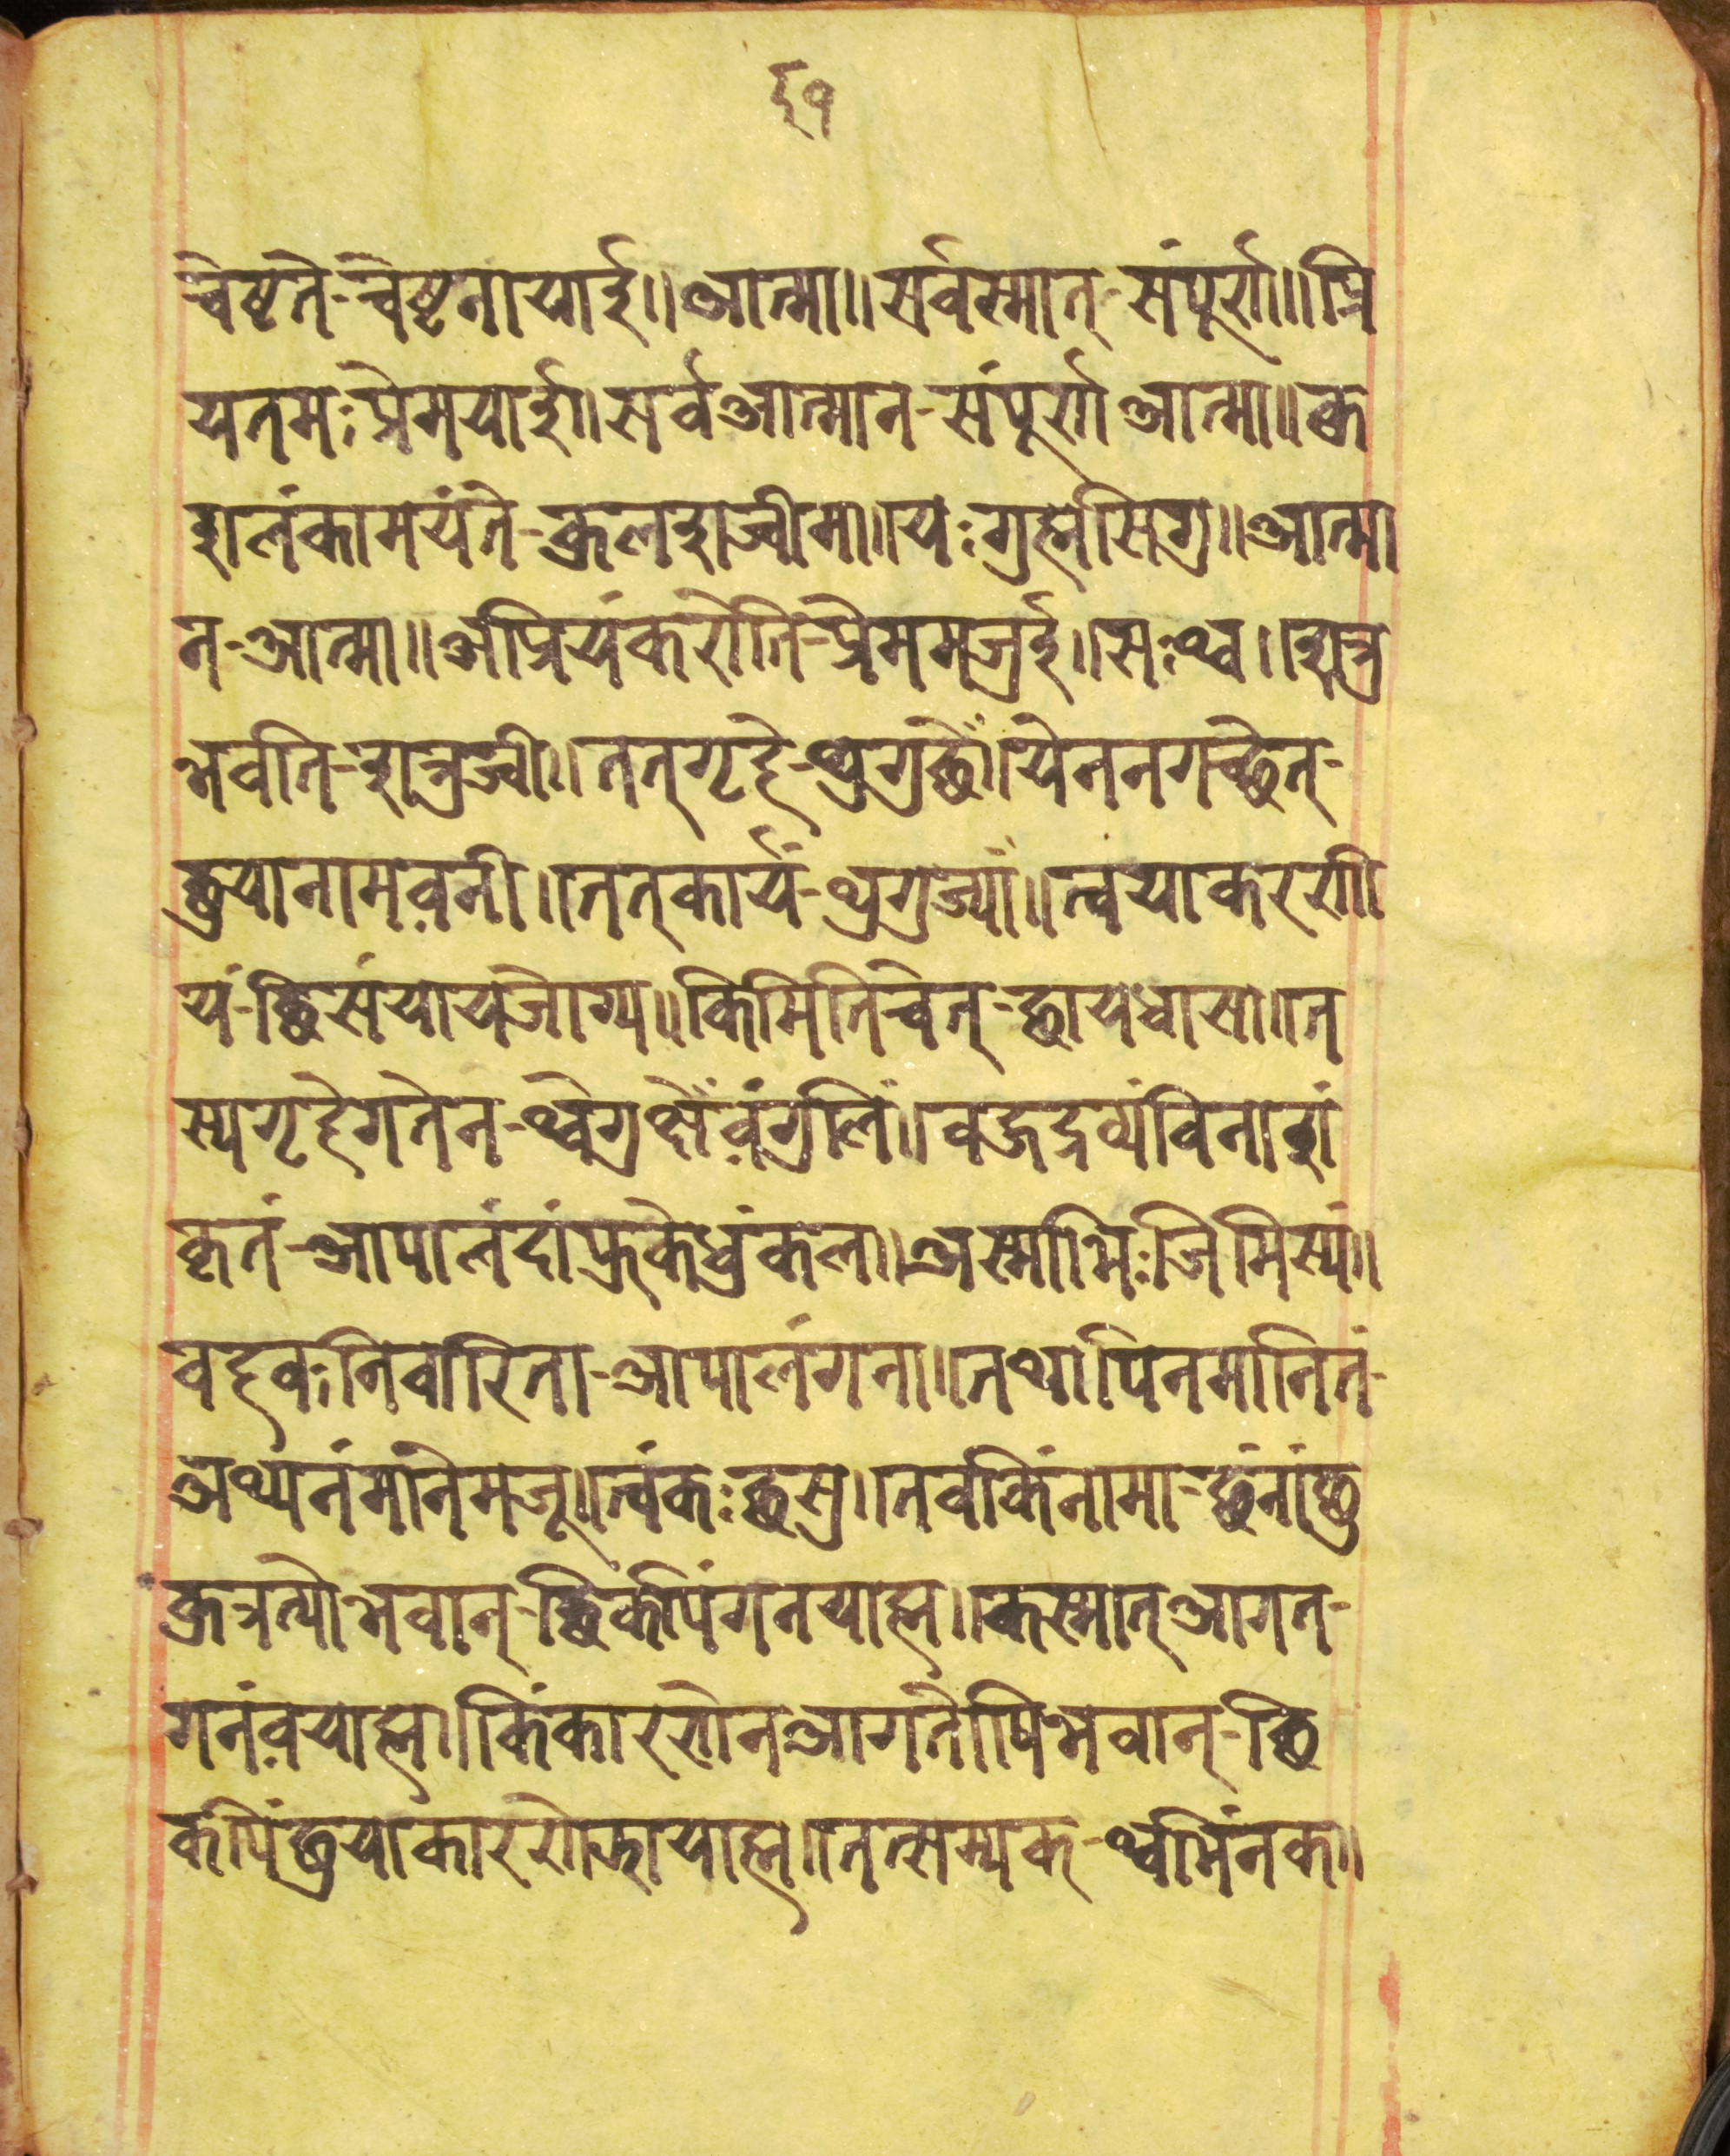 ६१
चेष्टते-चेष्टनायाई॥आत्मा॥सर्वस्मात्-संपूर्ण॥प्रि
यतमः प्रेमयाई॥सर्वआत्मान-संपूर्ण आत्मा॥कु
शलंकामयंते-कुलशज्वीमा॥यः गुह्मेसिगु॥आत्मा
न-आत्मा॥अप्रियंकरोति-प्रेममजुई॥सः थ्व॥शत्रु
भवति-शत्रुज्वी॥तत्गृहे-थुगुछेँ॥येननगच्छेत्-
छुयानामवनी॥तत्कार्यं-थुगुज्याँ॥त्वयाकरणी
यं-छिसंयायजोग्य॥किमितिचेत्-छायधासा॥त
स्यगृहेगतेन-थ्वेगुछेँवंगुलिं॥वहुद्रव्यंविनाशं
कृतं-आपालंदांफुकेधुंकल॥अस्माभिः जिमिस्यं॥
वहवः निवारिता-आपालंगना॥तथापिनमानितं-
अथ्यनंमानेमजू॥त्वंकः छसु॥तवकिंनामा-छंनांछु
कुत्रत्योभवान्-छिकपिंगनयाह्म॥कस्मात्आगत-
गनंवयाह्म॥किंकारणेनआगतोपिभवान्-छि
कपिंछुयाकारणेझायाह्म॥तत्सम्यक्-थ्वभिंनक॥